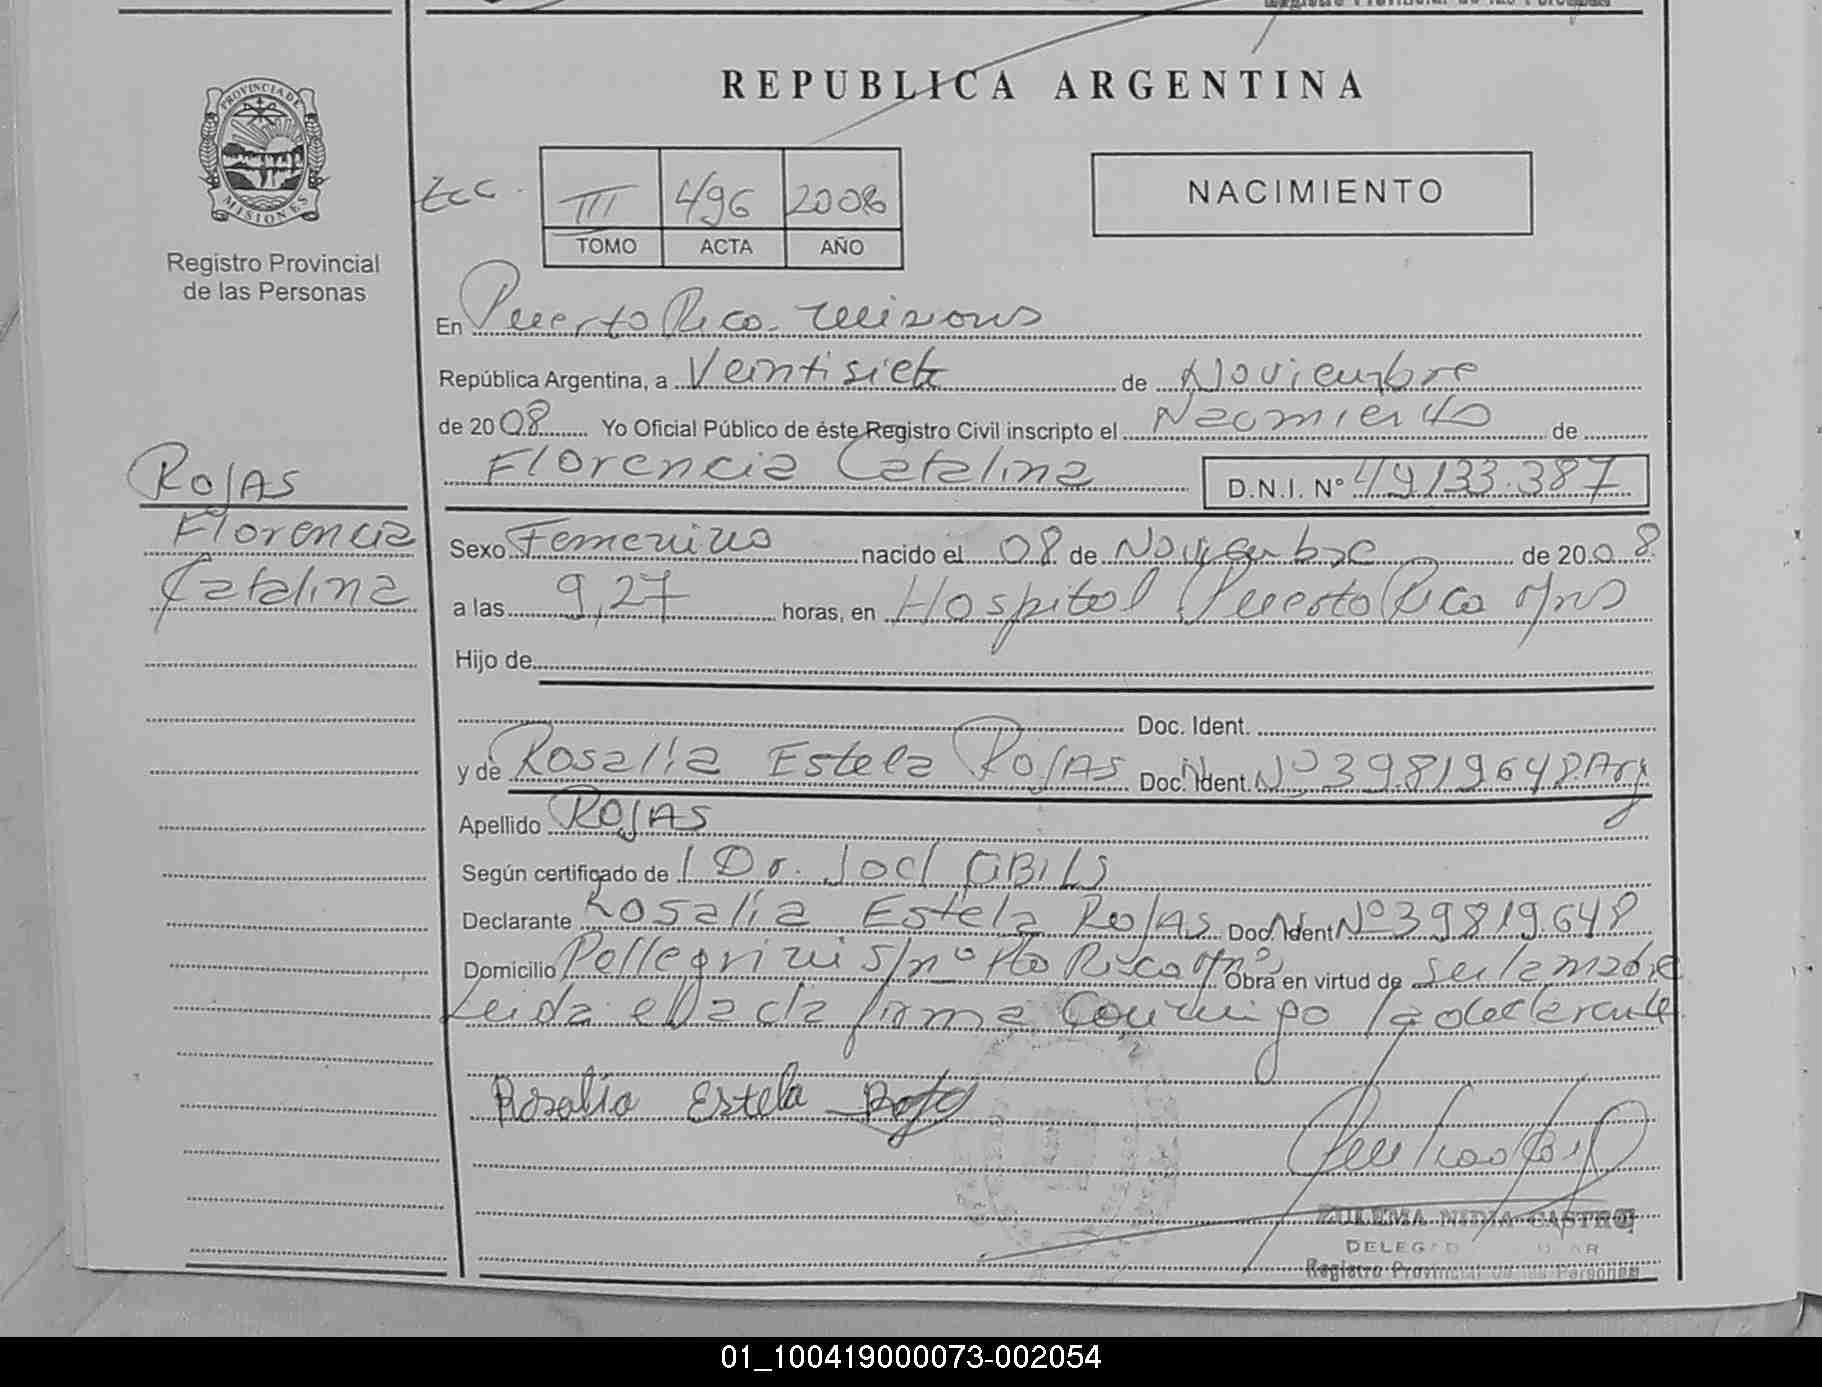 Registro Provincial de las Personas
REPUBLICA ARGENTINA
PROVINCIA DE
MISIONES
Registro Provincial
de las Personas
III 496 2008
TOMO ACTA AÑO
NACIMIENTO
En Puerto Rico. Misiones
República Argentina, a Veintisiete de Noviembre
de 2008 Yo Oficial Público de éste Registro Civil inscripto el Nacimiento de
Florencia Catalina D.N.I. Nº 49.133.387
ROJAS
Florencia
Catalina
Sexo Femenino nacido el 08 de Noviembre de 2008.
a las 9,27 horas, en Hospital Puerto Rico Mns
Hijo de
Doc. Ident.
y de Rosalía Estela ROJAS Doc. Ident. Nº 39.819.648.Arg
Apellido ROJAS
Según certificado de Dr. Joel
Declarante Rosalia Estela ROJAS Doc. Ident Nº 39819.648
Domicilio Pellegrini S/nº Pto Rico Mns Obra en virtud de ser la madre
Leida el acta firma conmigo la declarante
Rosalia Estela Rojas
ZULEMA NIDIA CASTRO
DELEGAD
Registro Provincial de las Personas
01_100419000073-002054